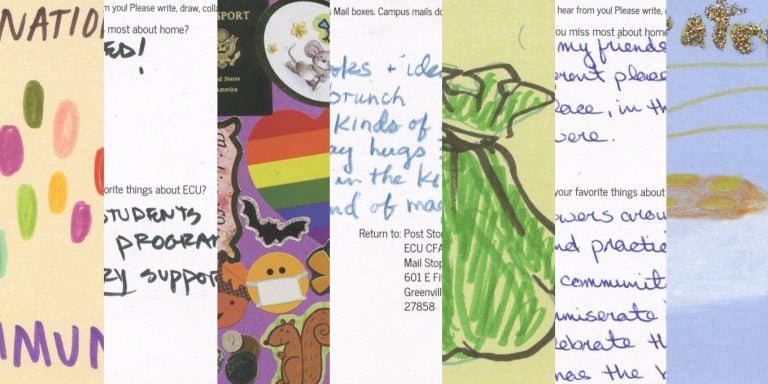 NATIO
MMUN
m you! Please write, draw, colla
most about home?
ED!
orite things about ECU?
STUDENTS
PROGRAM
ZY support
PASSPORT
United States
of America
Mail boxes. Campus mails do
oks + idea
brunch
kinds of
ay hugs
in the Ki
nd of mag
Return to: Post Stor
ECU CFA
Mail Stop
601 E Fi
Greenvill
27858
hear from you! Please write,
you miss most about home
my friends
erent place
lace, in th
were.
your favorite things about
owers arou
nd practic
communit
mmiserate
elebrate th
has the b